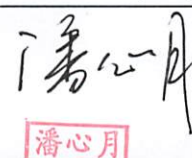 潘心月
潘心月